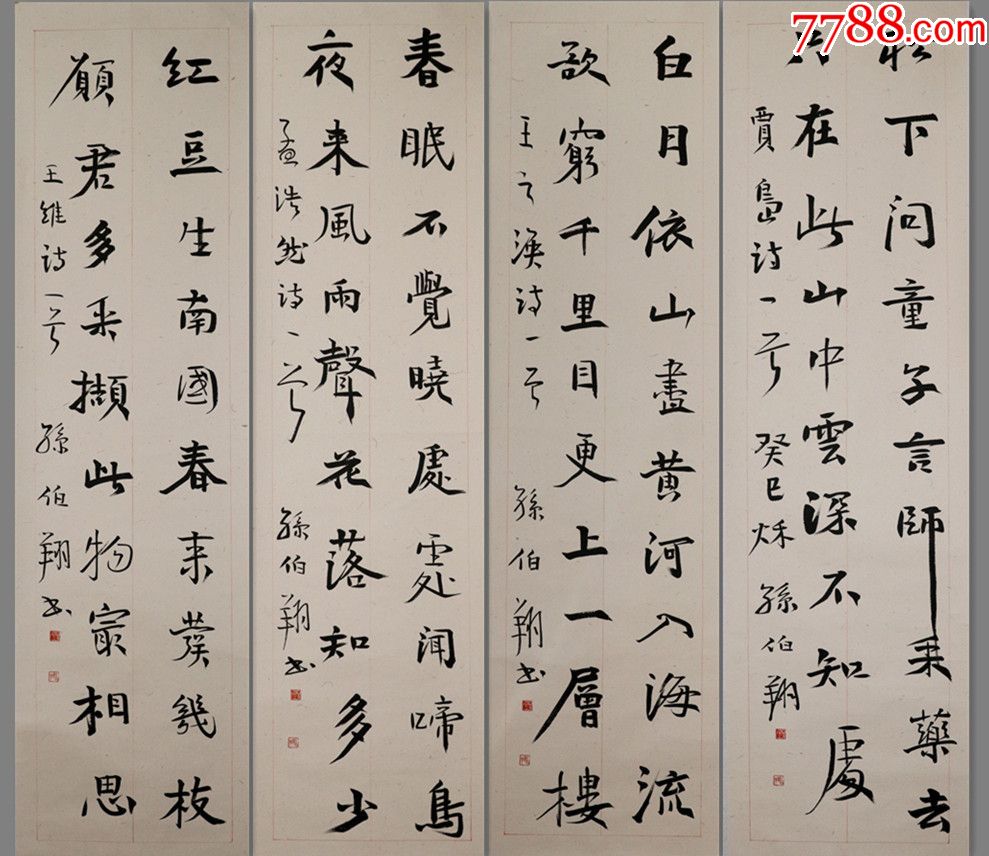 7788.com
松下問童子言師采藥去
只在此山中雲深不知處
賈島詩一首 癸巳秌 孫伯翔
白日依山盡黃河入海流
欲窮千里目更上一層樓
王之渙詩一首 孫伯翔書
春眠不覺曉處處聞啼鳥
夜來風雨聲花落知多少
孟浩然詩一首 孫伯翔書
紅豆生南國春來發幾枝
願君多采擷此物最相思
王維詩一首 孫伯翔書